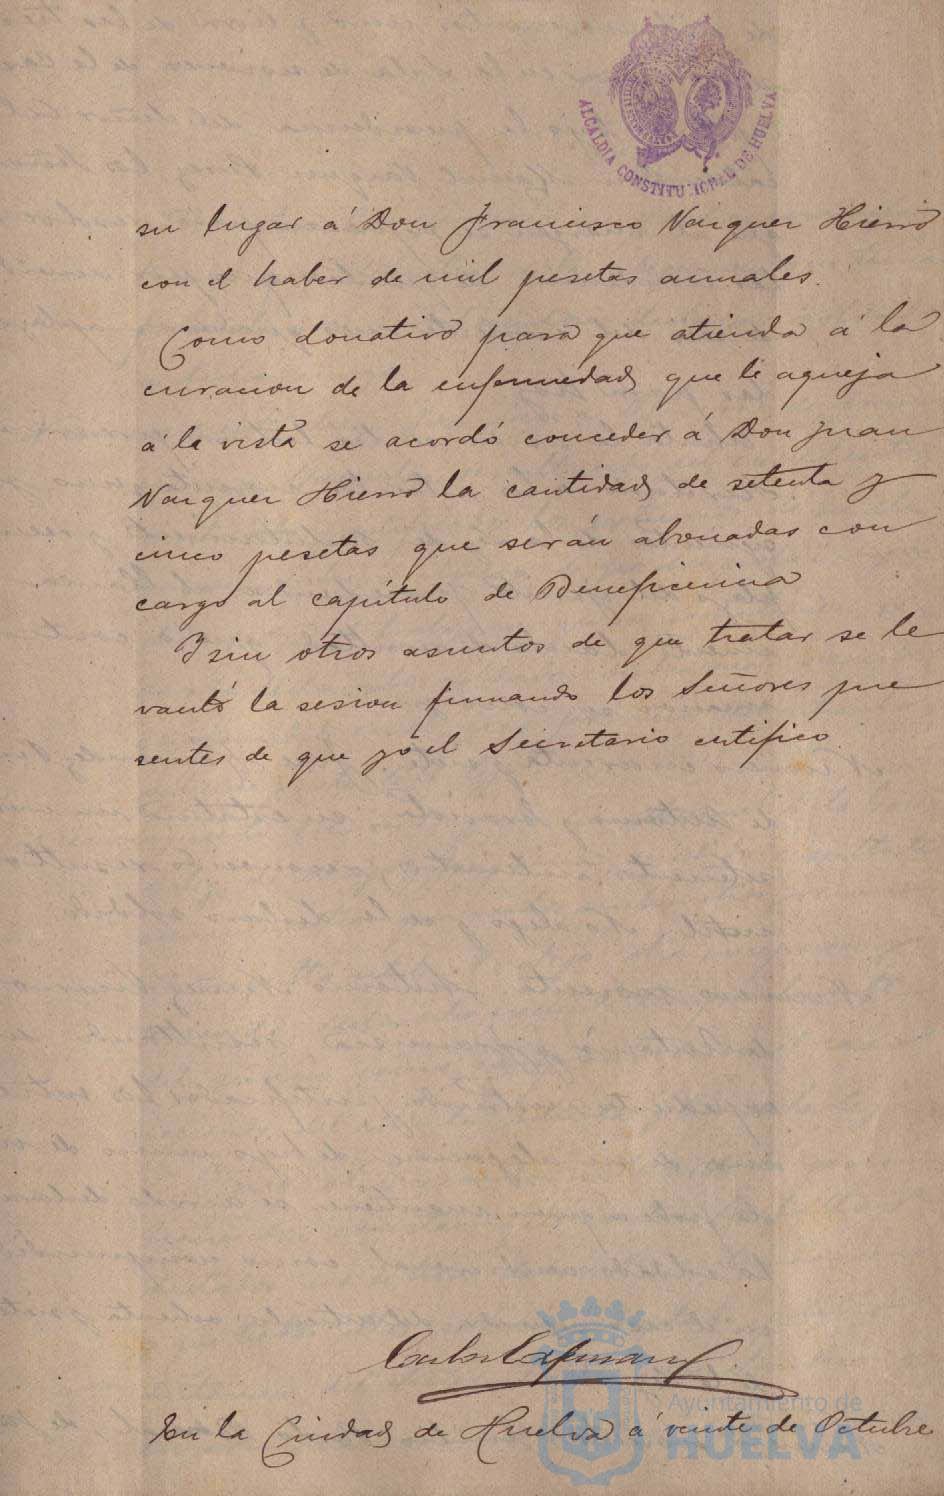 ALCALDIA CONSTITUCIONAL DE HUELVA
su lugar á Don Francisco Vazquez Hierro
con el haber de mil pesetas anuales.
Como donativo para que atienda á la
curacion de la enfermedad que le aqueja
á la vista se acordó conceder á Don Juan
Vazquez Hierro la cantidad de setenta y
cinco pesetas que serán abonadas con
cargo al capítulo de Beneficencia
Y sin otros asuntos de que tratar se le
vantó la sesion firmando los Señores pre
sentes de que yo el Secretario certifico.
Ayuntamiento de
HUELVA
En la Ciudad de Huelva á veinte de Octubre